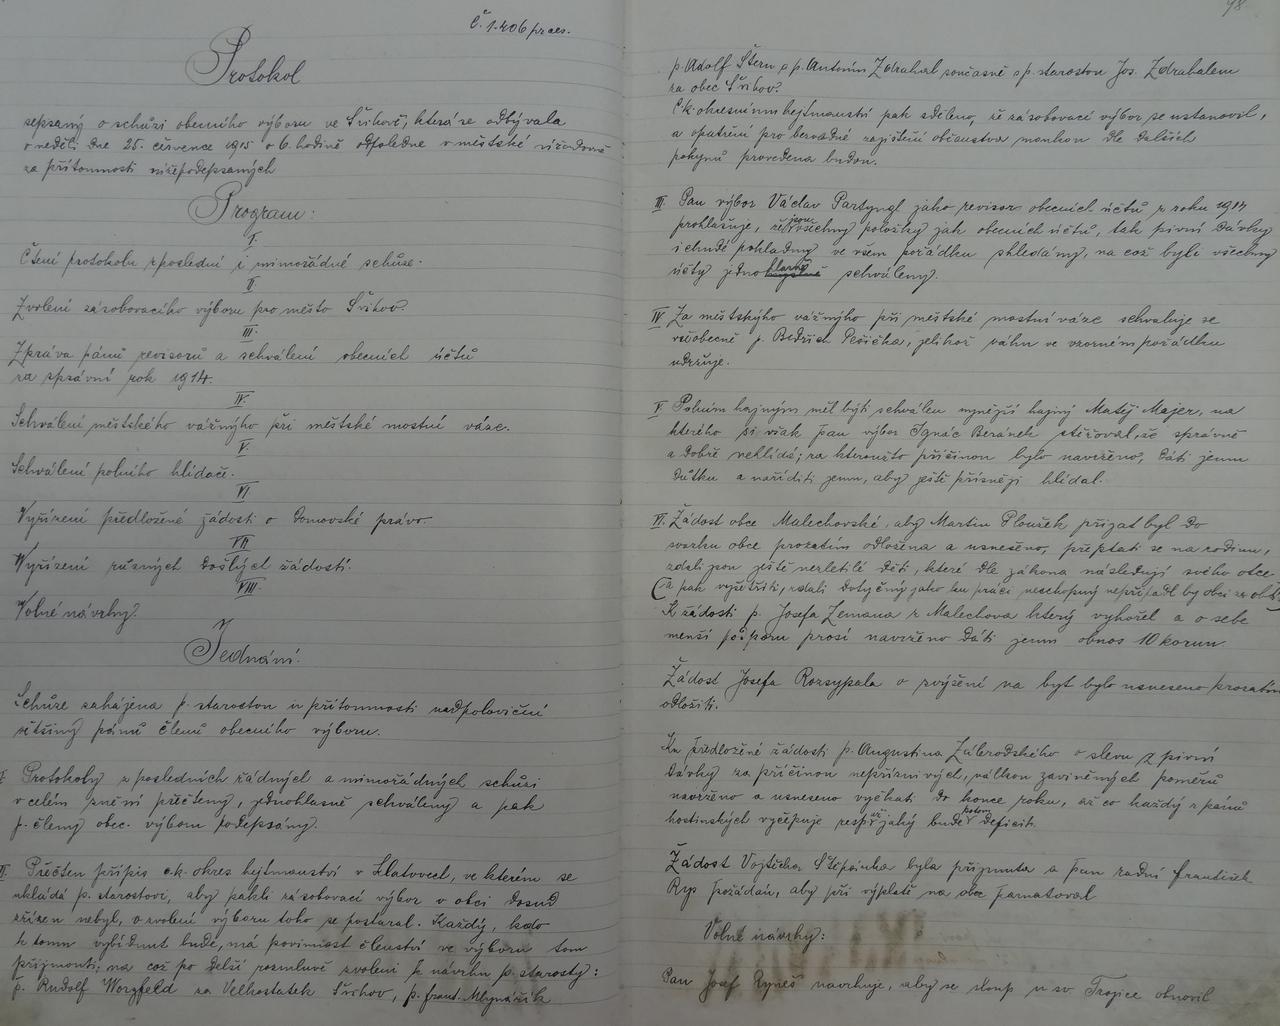 Č. 1.406 praes.
Protokol
sepsaný o schůzi obecního výboru ve Švihově, která se odbývala
v neděli dne 25. července 1915 o 6. hodině odpoledne v městské úřadovně
za přítomnosti nížepodepsaných
Program:
I.
Čtení protokolu z poslední i mimořádné schůze.
II.
Zvolení zásobovacího výboru pro město Švihov.
III.
Zpráva pánů revisorů a schválení obecních účtů
za správní rok 1914.
IV.
Schválení městského vážného při městské mostní váze.
V.
Schválení polního hlídače.
VI.
Vyřízení předložené žádosti o domovské právo.
VII.
Vyřízení různých došlých žádostí.
VIII.
Volné návrhy.
Jednání.
Schůze zahájena p. starostou za přítomnosti nadpoloviční
většiny pánů členů obecního výboru.
I. Protokoly z posledních řádných a mimořádných schůzí
v celém znění přečteny, jednohlasně schváleny a pak
p. členy obec. výboru podepsány.
II. Přečten přípis c.k. okres. hejtmanství v Klatovech, ve kterém se
ukládá p. starostovi, aby pakli zásobovací výbor v obci dosud
zřízen nebyl, o zvolení výboru toho se postaral. Každý, kdo
k tomu vybídnut bude, má povinnost členství ve výboru tom
přijmouti; na což po delší rozmluvě zvoleni k návrhu p. starosty:
p. Rudolf Worzfeld za Velkostatek Švihov, p. frant. Mlynářík
98
p. Adolf Štern a p. Antonín Zdrahal současně s p. starostou Jos. Zdrahalem
za obec Švihov.
C.k. okresnímu hejtmanství pak sděleno, že zásobovací výbor se ustanovil,
a opatření pro bezvadné zajištění občanstva moukou dle dalších
pokynů provedena budou.
III. Pan výbor Václav Partyngl jako revisor obecních účtů z roku 1914
prohlašuje, že jsou všechny položky jak obecních účtů, tak pivní dávky
i chudé pokladny ve všem pořádku shledány, na což byly všechny
účty jednohlasně schváleny.
IV. Za městského vážného při městské mostní váze schvaluje se
všeobecně p. Bedřich Pešička, jelikož váhu ve vzorném pořádku
udržuje.
V. Polním hajným měl býti schválen nynější hajný Matěj Majer, na
kterého si však pan výbor Ignác Beránek stěžoval, že správně
a dobře nehlídá; za kteroužto příčinou bylo navrženo, dáti jemu
důtku a naříditi jemu, aby ještě přísněji hlídal.
VI. Žádost obce Malechovské, aby Martin Ploužek přijat byl do
svazku obce prozatím odložena a usneseno, přeptati se na rodinu,
zdali jsou ještě nezletilé děti, které dle zákona následují svého otce
(a pak vyšetřiti, zdali dotyčný jako ku práci neschopný nepřipadl by obci za obtíž.)
K žádosti p. Josefa Zemana z Malechova který vyhořel a o sebe
menší podporu prosí navrženo dáti jemu obnos 10 korun.
Žádost Josefa Rozsypala o zvýšení na byt bylo usneseno prozatím
odložiti.
Ku předložené žádosti p. Augustina Zábrodského o slevu z pivní
dávky za příčinou nepříznivých, válkou zaviněných poměrů
navrženo a usneseno vyčkati do konce roku, až co každý z pánů
hostinských vyčepuje resp. až jaký bude potom deficit.
Žádost Vojtěcha Štěpánka byla přijmuta a pan radní František
Rys požádán, aby při výplatě na obce pamatoval
Volné návrhy:
Pan Josef Ryneš navrhuje, aby se sloup u sv. Trojice obnovil